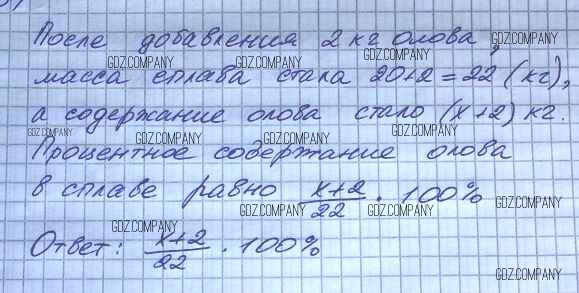 После добавления 2 кг олова,
масса сплава стала 20+2=22 (кг),
а содержание олова стало (x+2) кг.
Процентное содержание олова
в сплаве равно x+2/22 · 100%
Ответ: x+2/22 · 100%
GDZ.COMPANY
GDZ.COMPANY
GDZ.COMPANY
GDZ.COMPANY
GDZ.COMPANY
GDZ.COMPANY
GDZ.COMPANY
GDZ.COMPANY
GDZ.COMPANY
GDZ.COMPANY
GDZ.COMPANY
GDZ.COMPANY
GDZ.COMPANY